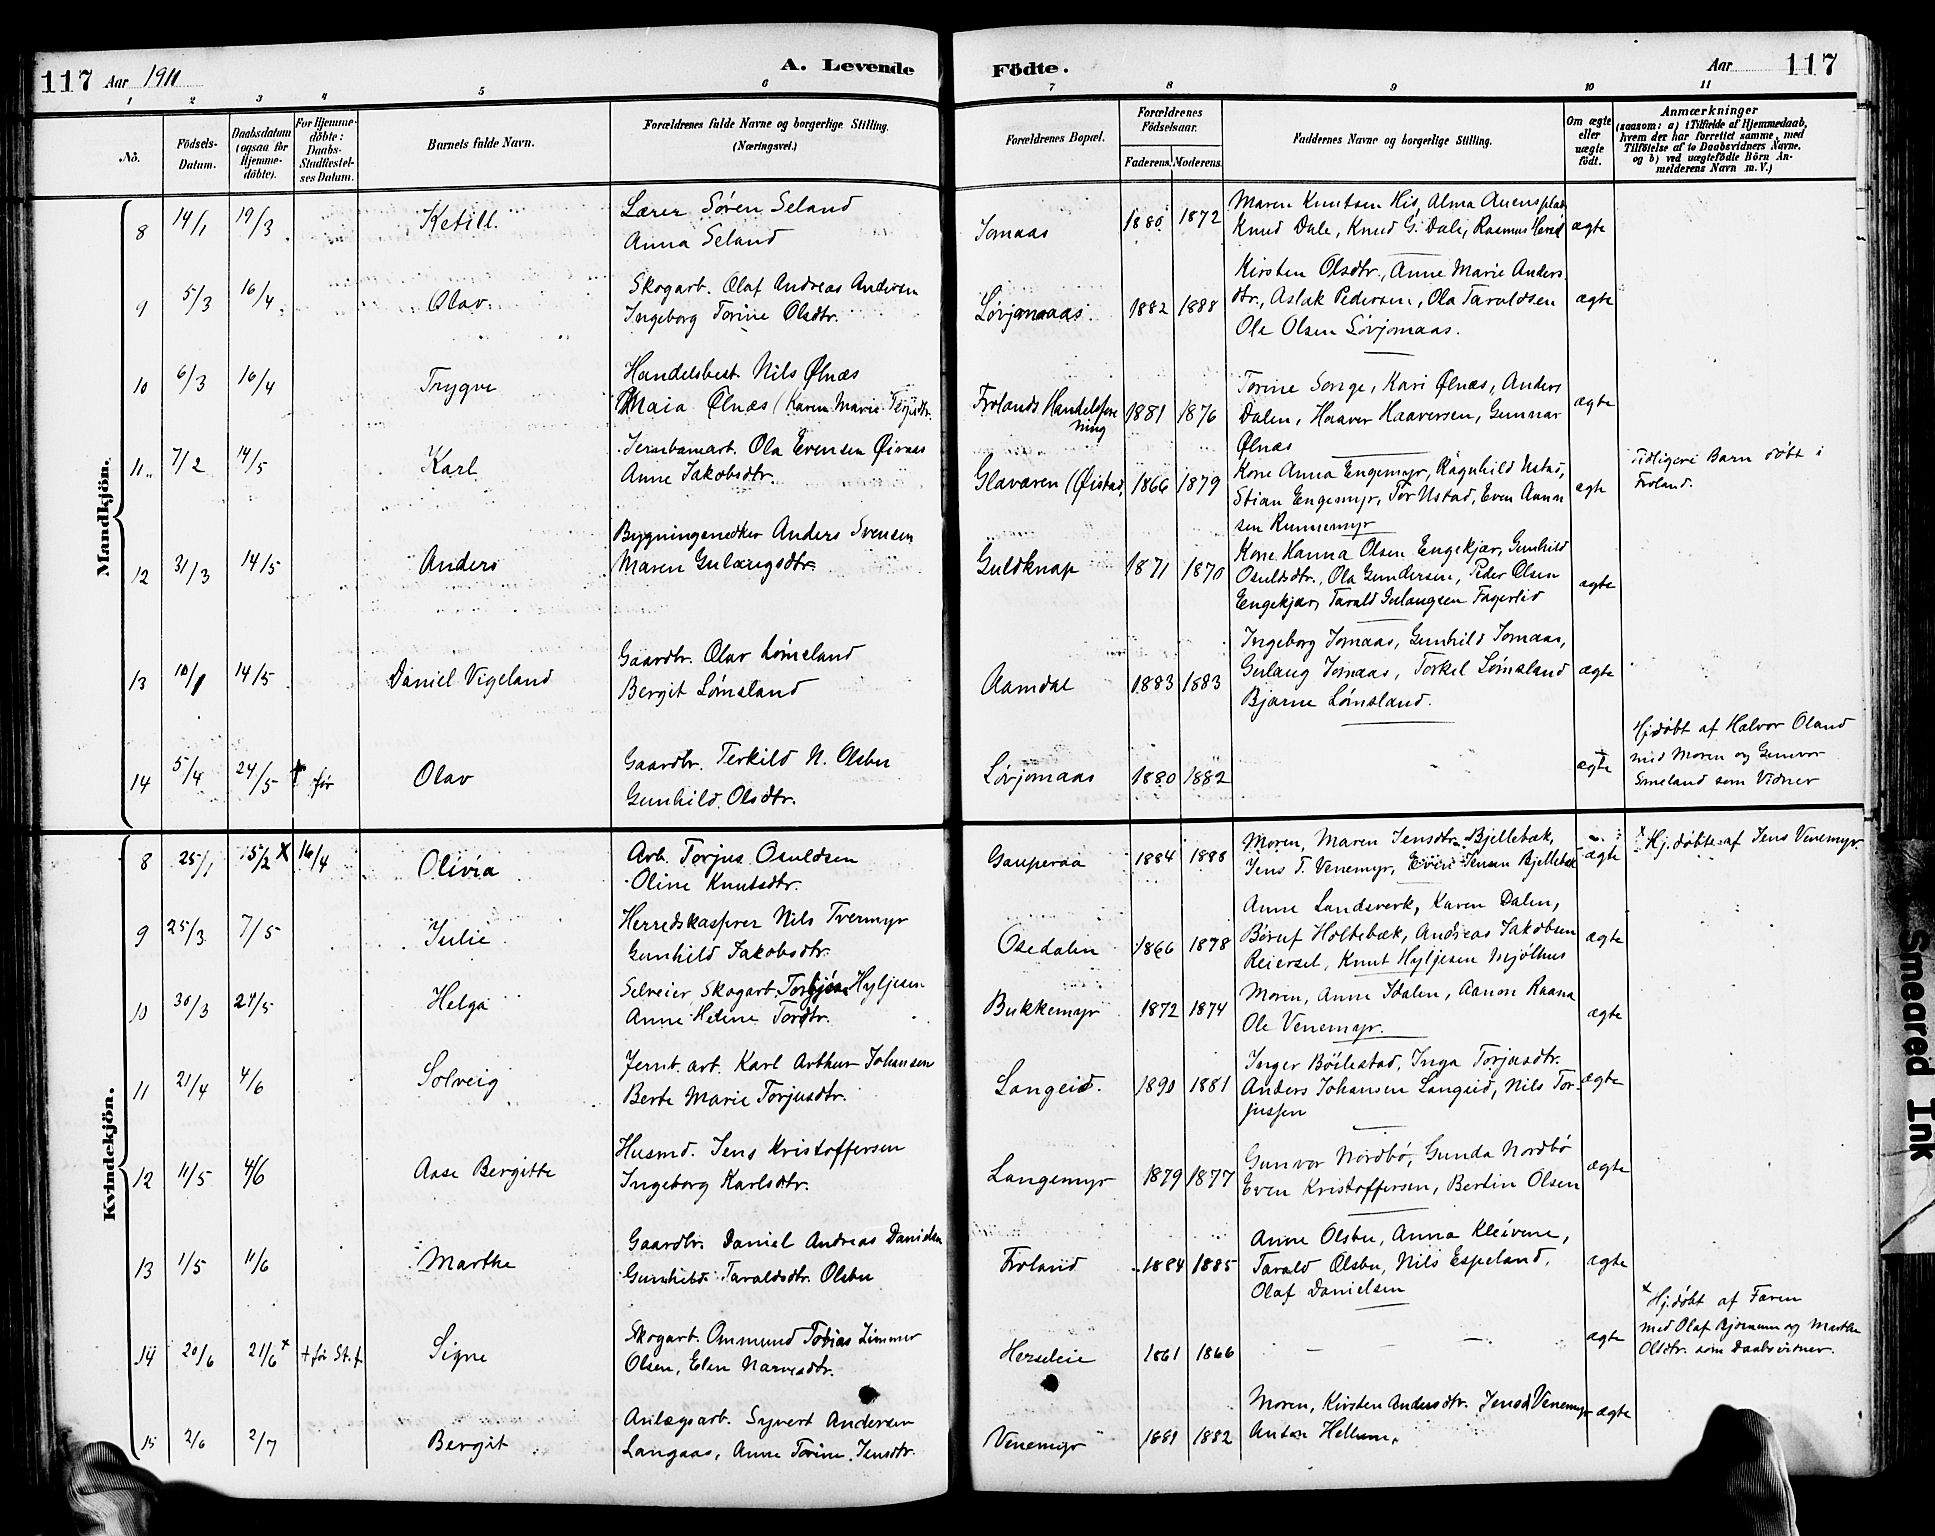 117 Aar 1911 A. Levende Födte. Aar 117
1 2 3 4 5 6 7 8 9 10 11
No. Födsels-Datum. Daabsdatum (ogsaa for Hjemme-döbte). For Hjemme-döbte: Daabs-Stadfæstel-ses Datum. Barnets fulde Navn. Forældrenes fulde Navne og borgerlige Stilling. (Næringsvei.) Forældrenes Bopæl. Forældrenes Födselsaar. Faderens. Moderens. Faddernes Navne og borgerlige Stilling. Om ægte eller uægte födt. Anmærkninger (saasom: a) i Tilfælde af Hjemmedaab, hvem der har forrettet samme, med Tilföielse af to Daabsvidners Navne, og b) ved uægtefödte Börn An-melderens Navn m. V.)
Mandkjön.
8 14/1 19/3 Ketill. Lærer Sören Seland
Anna Seland
Jomaas 1880 1872 Maren Knutsen His, Alma
Knud Dale, Knud G. Dale, Rasmus ægte
9 5/3 16/4 Olav. Skogarb. Olaf Andreas Andersen
Ingeborg Torine Olsdtr.
Lövjomaas. 1882 1888 Kirsten Olsdtr., Anne Marie Anders
dtr., Aslak Pedersen, Ola Taraldsen
Ole Olsen Lövjomaas. ægte
10 6/3 16/4 Trygve Handelsbest. Nils Ølnæs
Maia Ølnæs (Karen Marie Terjesdtr.
Frolands Handelsfore
ning 1881 1876 Torine Songe, Kari Ølnæs, Anders
Dalen, Haaver Haaversen, Gunnar
Ølnæs ægte
11 7/2 14/5 Karl Jernbanearb. Ola Evensen Øinæs
Anne Jakobsdtr.
Glavaren (Øistad) 1866 1879 Kone Anna Engemyr, Ragnhild Ustad,
Stian Engemyr, Tor Ustad, Even Aanon
sen Runnemyr ægte
Tidligere Barn döbt i
Froland.
12 31/3 14/5 Anders Bygningsnedker Anders Svensen
Maren Gulaugsdtr.
Guldknap 1871 1870 Kone Hanna Olsen Engekjær, Gunhild
Osuldsdtr., Ola Gundersen, Peder Olsen
Engekjær, Tarald Gulaugsen Fagerlid ægte
13 10/1 14/5 Daniel Vigeland Gaardbr. Olav Lömsland
Bergit Lömsland
Aamdal 1883 1883 Ingeborg Jomaas, Gunhild Jomaas,
Gulaug Jomaas, Torkel Lömsland
Bjarne Lömsland. ægte
14 5/4 24/5 + før Olav Gaardbr. Terkild N. Olsbu
Gunhild Olsdtr.
Lövjomaas 1880 1882 ægte
Hjdöbt af Halvor Oland
med Moren og Gunvor
Smeland som Vidner
Kvindekjön.
8 25/1 15/2 X 16/4 Olivia Arb. Torjus Osuldsen
Oline Knutsdtr.
Gauperaa 1884 1888 Moren, Maren Jensdtr. Bjellebæk,
Jens T. Venemyr, Even Jensen Bjellebæk ægte
x Hj.döbt af Jens Venemyr.
9 25/3 7/5 Julie Herredskasserer Nils Tvermyr
Gunhild Jakobsdtr.
Osedalen 1866 1878 Anne Landsverk, Karen Dalen,
Böruf Holtebæk, Andreas Jakobsen
Reiersel, Knut Hyljesen Mjølhus ægte
10 30/3 24/5 Helga Selveier, Skogarb. Torbjörn Hyljesen
Anne Helene Torsdtr.
Bukkemyr 1872 1874 Moren, Anne Idalen, Aanon Raana
Ole Venemyr. ægte
11 21/4 4/6 Solveig Jernb. arb. Karl Arthur Johansen
Berte Marie Torjusdtr.
Langeid. 1890 1881 Inger Böilestad, Inga Torjusdtr.
Anders Johansen Langeid, Nils Tor-
jussen ægte
12 11/5 4/6 Aase Bergitte Husmd. Jens Kristoffersen
Ingeborg Karlsdtr.
Langemyr 1879 1877 Gunvor Nordbø, Gunda Nordbø
Even Kristoffersen, Bertin Olsen ægte
13 1/5 11/6 Marthe Gaardbr. Daniel Andreas Danielsen
Gunhild Taraldsdtr. Olsbu
Froland 1884 1885 Anne Olsbu, Anna Kleivene,
Tarald Olsbu, Nils Espeland,
Olaf Danielsen ægte
14 20/6 21/6 x + før St.f. Signe Skogarb. Ommund Tobias Limmer
Olsen, Elen Narvesdtr.
Herseleie 1861 1866 ægte
x Hj.döbt af Faren
med Olaf Bjornum og Marthe
Olsdtr. som Daabsvidner.
15 2/6 2/7 Bergit Anlægsarb. Syvert Andersen
Langaas, Anne Torine Jensdtr.
Venemyr 1881 1882 Moren, Kirsten Andersdtr. Jens Venemyr
Anton Hellum. ægte
Smeared Ink